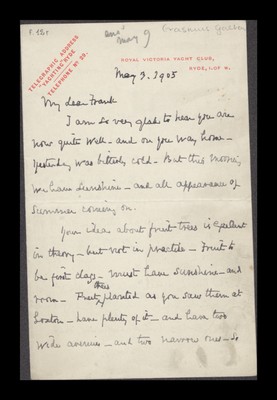 F. 15r
ansd
May 9
Erasmus
TELEGRAPHIC ADDRESS
"YACHTING RYDE"
TELEPHONE Nº 39.
ROYAL VICTORIA YACHT CLUB,
RYDE, I. OF W.
May 3. 1905
My dear Frank
I am so very glad to hear you are
now quite well - and on your way home -
Yesterday was bitterly cold - But this morning
we have sunshine - and all appearance of
summer coming on.
Your idea about fruit-trees is excellent
in theory - but not in practice - Fruit to
be first class - must have sunshine - and
room - Fruit trees planted as you saw them at
Loxton - have plenty of it - and have two
wide avenues - and two narrow ones - So